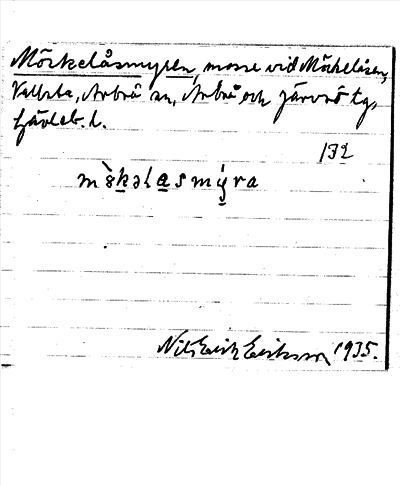 Mörkelåsmyren, mosse vid Mörkelåsen,
Vallsta, Arbrå sn, Arbrå och Järvsö tg,
Gävleb. l.
132
Nils Erik Eriksson 1935.